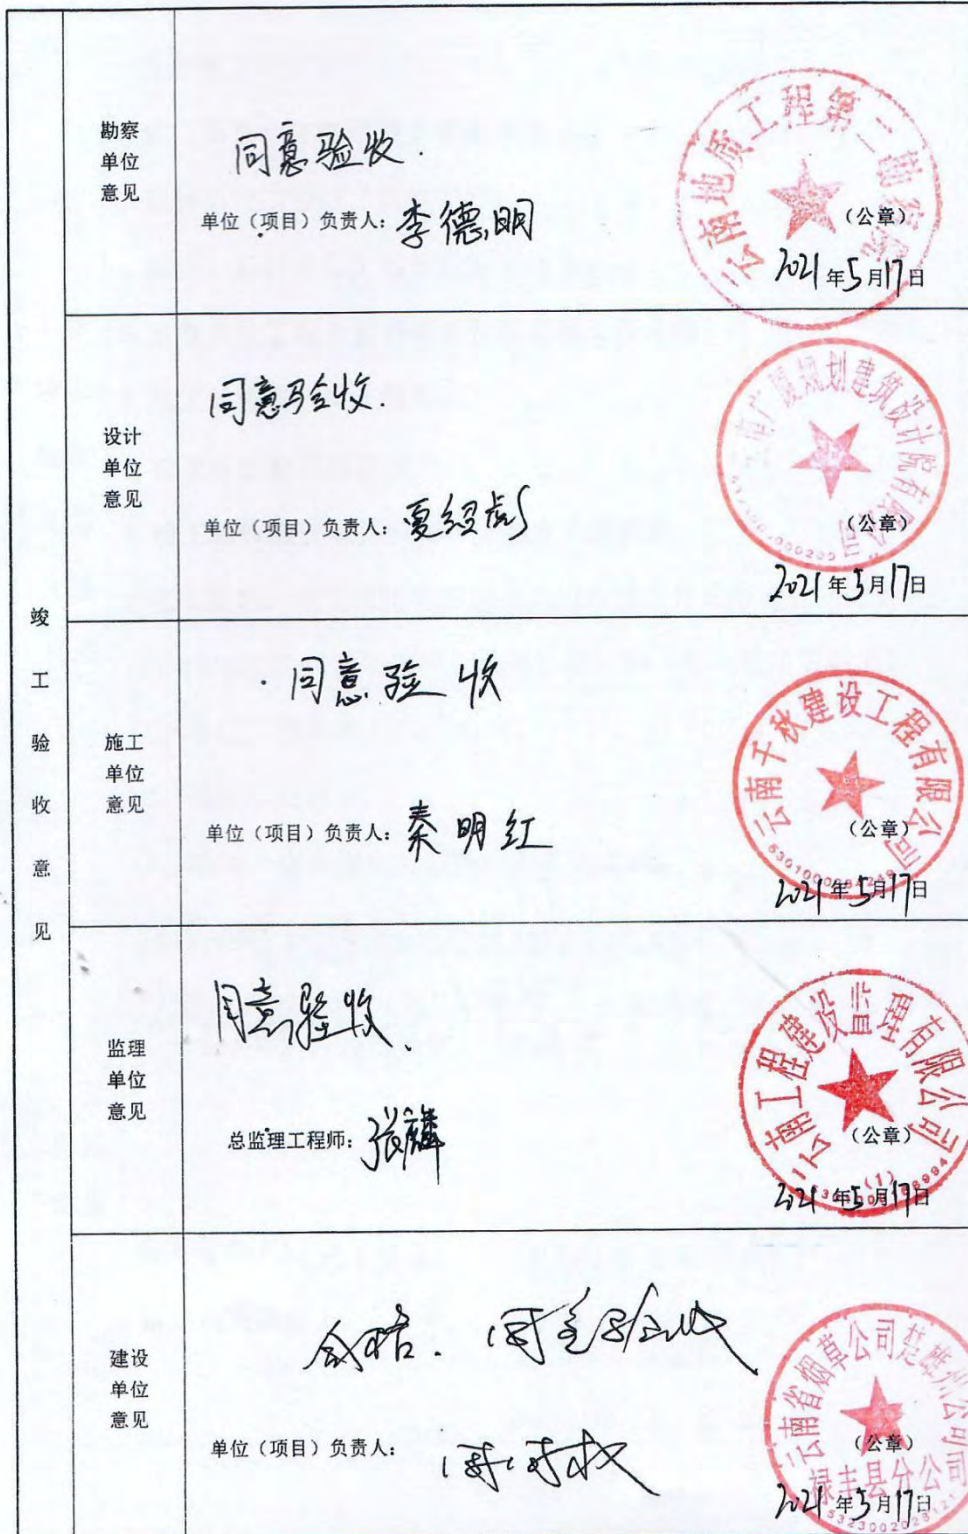 竣工验收意见
勘察单位意见
同意验收.
单位（项目）负责人：李德明
云南地质工程第二勘察院
（公章）
2021年5月17日
设计单位意见
同意验收.
单位（项目）负责人：夏绍彪
规划建筑设计院有限公司
（公章）
2021年5月17日
施工单位意见
同意验收
单位（项目）负责人：秦明红
云南千秋建设工程有限公司
（公章）
2021年5月17日
监理单位意见
同意验收、
总监理工程师：张麟
云南工程建设监理有限公司
（公章）
(1)
2021年5月17日
建设单位意见
合格. 同意验收
单位（项目）负责人：
云南省烟草公司楚雄州公司
（公章）
禄丰县分公司
2021年5月17日